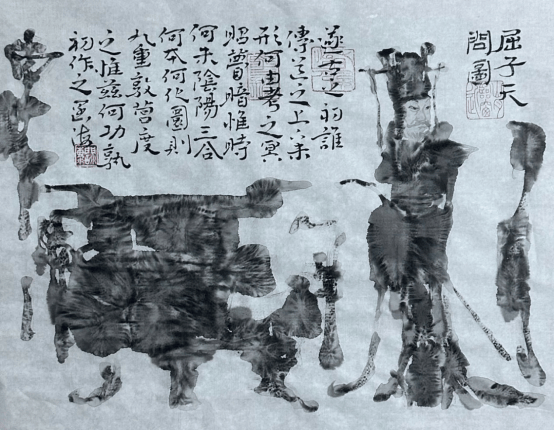 屈子天
問圖
遂古之初誰
傳道之上下未
形何由考之冥
昭瞢暗惟時
何未陰陽三合
何本何化圜則
九重孰營度
之惟茲何功孰
初作之